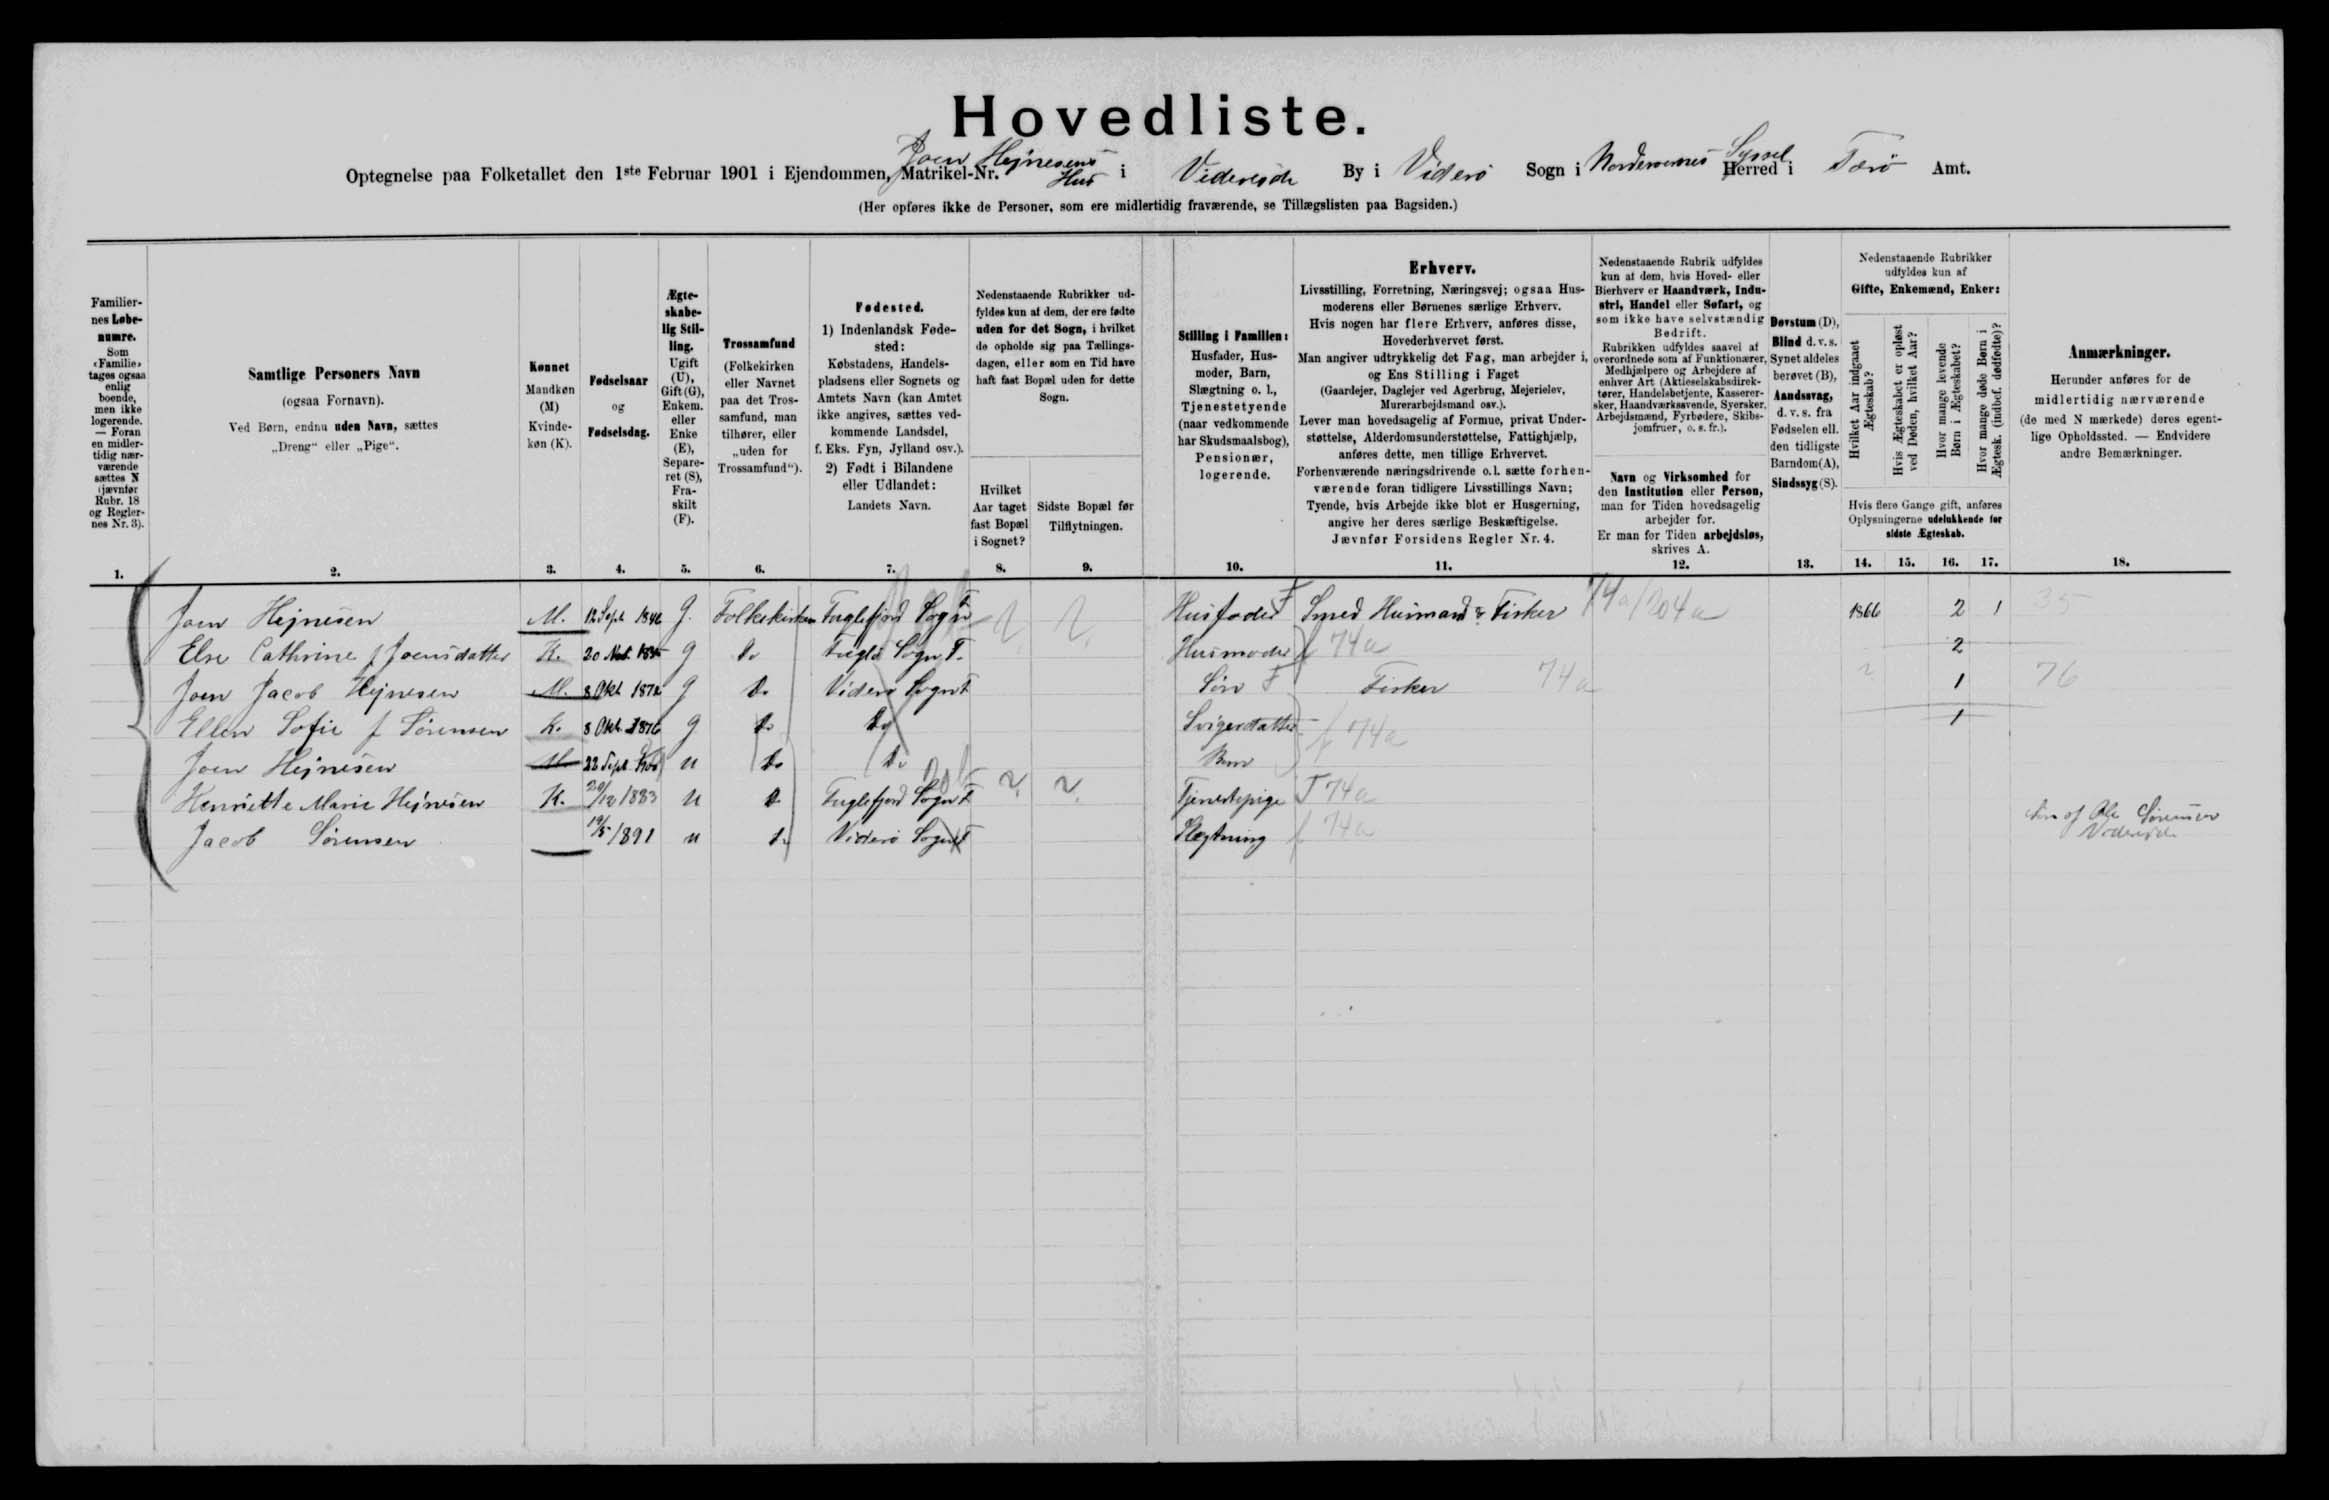 Hovedliste.
Optegnelse paa Folketallet den 1ste Februar 1901 i Ejendommen, Matrikel-Nr. Joen Hejnesens Hus i Videreide By i Viderø Sogn i Norderøernes Syssel Herred i Færø Amt.
(Her opføres ikke de Personer, som ere midlertidig fraværende, se Tillægslisten paa Bagsiden.)
Familier-
nes Løbe-
numre.
Som
«Familie»
tages ogsaa
enlig
boende,
men ikke
logerende.
— Foran
en midler-
tidig nær-
værende
sættes N
(jævnfør
Rubr. 18
og Regler-
nes Nr. 3).
1.
Samtlige Personers Navn
(ogsaa Fornavn).
Ved Børn, endnu uden Navn, sættes
„Dreng“ eller „Pige“.
2.
Kønnet
Mandkøn
(M)
Kvinde-
køn (K).
3.
Fødselsaar
og
Fødselsdag.
4.
Ægte-
skabe-
lig Stil-
ling.
Ugift
(U),
Gift (G),
Enkem.
eller
Enke
(E),
Separe-
ret (S),
Fra-
skilt
(F).
5.
Trossamfund
(Folkekirken
eller Navnet
paa det Tros-
samfund, man
tilhører, eller
„uden for
Trossamfund“).
6.
Fødested.
1) Indenlandsk Føde-
sted:
Købstadens, Handels-
pladsens eller Sognets og
Amtets Navn (kan Amtet
ikke angives, sættes ved-
kommende Landsdel,
f. Eks. Fyn, Jylland osv.).
2) Født i Bilandene
eller Udlandet:
Landets Navn.
7.
Nedenstaaende Rubrikker ud-
fyldes kun af dem, der ere fødte
uden for det Sogn, i hvilket
de opholde sig paa Tællings-
dagen, eller som en Tid have
haft fast Bopæl uden for dette
Sogn.
Hvilket
Aar taget
fast Bopæl
i Sognet?
8.
Sidste Bopæl før
Tilflytningen.
9.
Stilling i Familien:
Husfader, Hus-
moder, Barn,
Slægtning o. l.,
Tjenestetyende
(naar vedkommende
har Skudsmaalsbog),
Pensionær,
logerende.
10.
Erhverv.
Livsstilling, Forretning, Næringsvej; ogsaa Hus-
moderens eller Børnenes særlige Erhverv.
Hvis nogen har flere Erhverv, anføres disse,
Hovederhvervet først.
Man angiver udtrykkelig det Fag, man arbejder i,
og Ens Stilling i Faget
(Gaardejer, Daglejer ved Agerbrug, Mejerielev,
Murerarbejdsmand osv.).
Lever man hovedsagelig af Formue, privat Under-
støttelse, Alderdomsunderstøttelse, Fattighjælp,
anføres dette, men tillige Erhvervet.
Forhenværende næringsdrivende o. l. sætte forhen-
værende foran tidligere Livsstillings Navn;
Tyende, hvis Arbejde ikke blot er Husgerning,
angive her deres særlige Beskæftigelse.
Jævnfør Forsidens Regler Nr. 4.
11.
Nedenstaaende Rubrik udfyldes
kun af dem, hvis Hoved- eller
Bierhverv er Haandværk, Indu-
stri, Handel eller Søfart, og
som ikke have selvstændig
Bedrift.
Rubrikken udfyldes saavel af
overordnede som af Funktionærer,
Medhjælpere og Arbejdere af
enhver Art (Aktieselskabsdirek-
tører, Handelsbetjente, Kasserer-
sker, Haandværkssvende, Syersker,
Arbejdsmænd, Fyrbødere, Skibs-
jomfruer, o. s. fr.).
Navn og Virksomhed for
den Institution eller Person,
man for Tiden hovedsagelig
arbejder for.
Er man for Tiden arbejdsløs,
skrives A.
12.
Døvstum (D),
Blind d. v. s.
Synet aldeles
berøvet (B),
Aandssvag,
d. v. s. fra
Fødselen ell.
den tidligste
Barndom (A),
Sindssyg (S).
13.
Nedenstaaende Rubrikker
udfyldes kun af
Gifte, Enkemænd, Enker:
Hvilket Aar indgaaet
Ægteskab?
Hvis Ægteskabet er opløst
ved Døden, hvilket Aar?
Hvor mange levende
Børn i Ægteskabet?
Hvor mange døde Børn i
Ægtesk. (indbef. dødfødte)?
Hvis flere Gange gift, anføres
Oplysningerne udelukkende for
sidste Ægteskab.
14. 15. 16. 17.
Anmærkninger.
Herunder anføres for de
midlertidig nærværende
(de med N mærkede) deres egent-
lige Opholdssted. — Endvidere
andre Bemærkninger.
18.
Joen Hejnesen M. 12 Sept 1846 G. Folkekirken Fuglefjord Sogn F ? ? Husfader F Smed Husmand & Fisker 74a/204a 1866 2 1 35
Else Cathrine f Joensdatter K. 20 G Do Fuglø Sogn F. Husmoder f 74a 2
Joen Jacob Hejnesen M. 8 Okt 1872 G Do Viderø Sogn F Søn F Fisker 74a ? 1 76
Ellen Sofie f Sørensen K. 8 Okt 1876 G Do Do Svigerdatter f 74a 1
Joen Hejnesen M 22 Sept 1900 U Do Do Barn
Henriette Marie Hejnesen K. 20/12 1883 U Do Fuglefjord Sogn F ? ? Tjenestepige T 74a
Jacob Sørensen 19/5 1891 U Do Viderø Sogn F Slægtning f 74a Søn af Ole Sørensen
Videreide